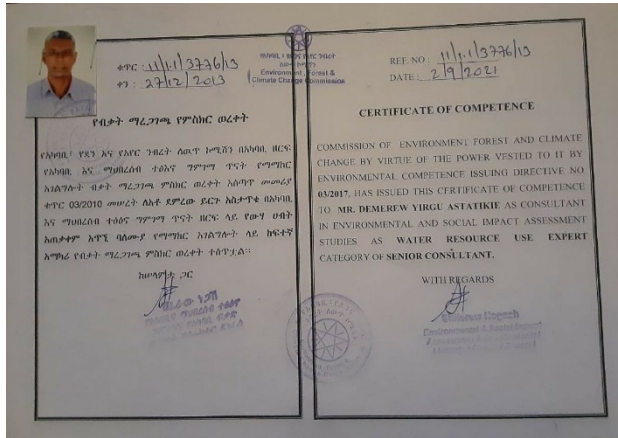 ቁጥር : 11/1.1/3776/13
ቀን : 27/12/2013
የብቃት ማረጋገጫ የምስክር ወረቀት
የአካባቢ፣ የደን እና የአየር ንብረት ለውጥ ኮሚሽን በአካባቢ ዘርፍ
የአካባቢ እና ማህበረሰብ ተፅእኖ ግምገማ ጥናት የማማከር
አገልግሎት ብቃት ማረጋገጫ ምስክር ወረቀት አሰጣጥ መመሪያ
ቁጥር 03/2010 መሠረት ለአቶ ደምረው ይርጉ አስታጥቄ በአካባቢ
እና ማህበረሰብ ተፅዕኖ ግምገማ ጥናት ዘርፍ ላይ የውሃ ሀብት
አጠቃቀም አጥኚ ባለሙያ የማማከር አገልግሎት ላይ ከፍተኛ
አማካሪ የብቃት ማረጋገጫ ምስክር ወረቀት ተሰጥቷል።
ከሠላምታ ጋር
Environment, Forest &
Climate Change Commission
REF. NO : 11/1.1/3776/13
DATE : 2/9/2021
CERTIFICATE OF COMPETENCE
COMMISSION OF ENVIRONMENT FOREST AND CLIMATE
CHANGE BY VIRTUE OF THE POWER VESTED TO IT BY
ENVIRONMENTAL COMPETENCE ISSUING DIRECTIVE NO
03/2017, HAS ISSUED THIS CERTIFICATE OF COMPETENCE
TO MR. DEMEREW YIRGU ASTATIKIE AS CONSULTANT
IN ENVIRONMENTAL AND SOCIAL IMPACT ASSESSMENT
STUDIES AS WATER RESOURCE USE EXPERT
CATEGORY OF SENIOR CONSULTANT.
WITH REGARDS